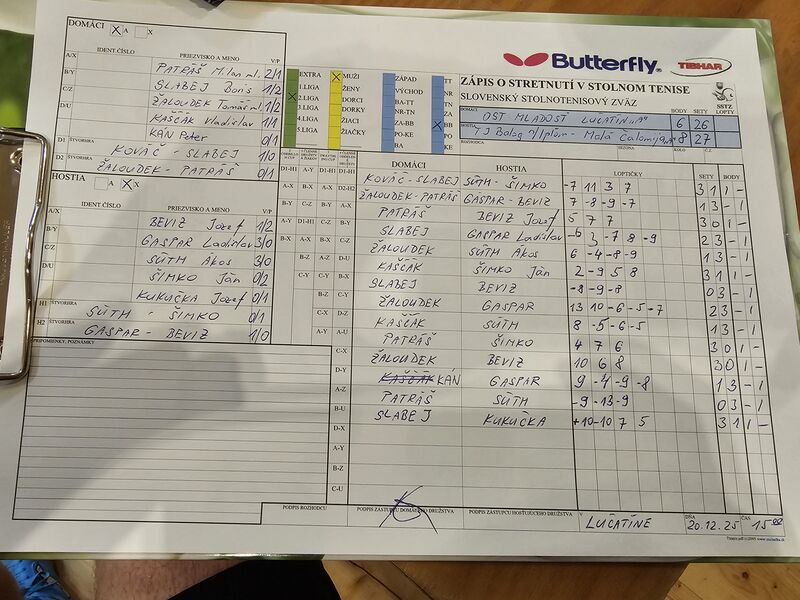 DOMÁCI X A X
Butterfly TIBHAR
ZÁPIS O STRETNUTÍ V STOLNOM TENISE
SLOVENSKÝ STOLNOTENISOVÝ ZVÄZ
SSTZ
LOPTY
DOMÁCI OST MLADOSŤ LUČATÍN "A" BODY 6 SETY 26
HOSTIA TJ Balog n/Ipľom - Malá Čalomija 8 27
ROZHODCA SEZÓNA KOLO Č.Z.
IDENT ČÍSLO PRIEZVISKO A MENO V/P
A/X PATRÁŠ Milan ml. 2/1
B/Y SLABEJ Boris 1/2
C/Z ŽALOUDEK Tomáš ml. 1/2
D/U KAŠČÁK Vladislav 1/1
KÁN Peter 0/1
D1 ŠTVORHRA KOVÁČ - SLABEJ 1/0
D2 ŠTVORHRA ŽALOUDEK - PATRÁŠ 0/1
HOSTIA A X X
IDENT ČÍSLO PRIEZVISKO A MENO V/P
A/X BEVIZ Jozef 1/2
B/Y GAŠPAR Ladislav 3/0
C/Z SÜTH Ákos 3/0
D/U ŠIMKO Ján 0/2
KUKUČKA Jozef 0/1
H1 ŠTVORHRA SÜTH - ŠIMKO 0/1
H2 ŠTVORHRA GAŠPAR - BEVIZ 1/0
PRIPOMIENKY, POZNÁMKY
EXTRA
1.LIGA
2.LIGA
3.LIGA
4.LIGA
5.LIGA
MUŽI
ŽENY
DORCI
DORKY
ŽIACI
ŽIAČKY
ZÁPAD
VÝCHOD
BA-TT
NR-TN
ZA-BB
PO-KE
TT
TN
NR
ZA
BB
PO
KE
DOMÁCI HOSTIA LOPTIČKY SETY BODY
KOVÁČ - SLABEJ SÜTH - ŠIMKO -7 11 3 7 3 1 1 -
ŽALOUDEK - PATRÁŠ GAŠPAR - BEVIZ 7 -8 -9 -7 1 3 - 1
PATRÁŠ BEVIZ Jozef 5 7 7 3 0 1 -
SLABEJ GAŠPAR Ladislav -6 3 -7 8 -9 2 3 - 1
ŽALOUDEK SÜTH Ákos 6 -4 -8 -9 1 3 - 1
KAŠČÁK ŠIMKO Ján 2 -9 5 8 3 1 1 -
SLABEJ BEVIZ -8 -9 -8 0 3 - 1
ŽALOUDEK GAŠPAR 13 10 -6 -5 -7 2 3 - 1
KAŠČÁK SÜTH 8 -5 -6 -5 1 3 - 1
PATRÁŠ ŠIMKO 4 7 6 3 0 1 -
ŽALOUDEK BEVIZ 10 6 8 3 0 1 -
KAŠČÁK KÁN GAŠPAR 9 -4 -9 -8 1 3 - 1
PATRÁŠ SÜTH -9 -13 -9 0 3 - 1
SLABEJ KUKUČKA +10 -10 7 5 3 1 1 -
PODPIS ROZHODCU PODPIS ZÁSTUPCU DOMÁCEHO DRUŽSTVA PODPIS ZÁSTUPCU HOSŤUJÚCEHO DRUŽSTVA V LUČATÍNE DŇA 20.12.25 ČAS 15.00